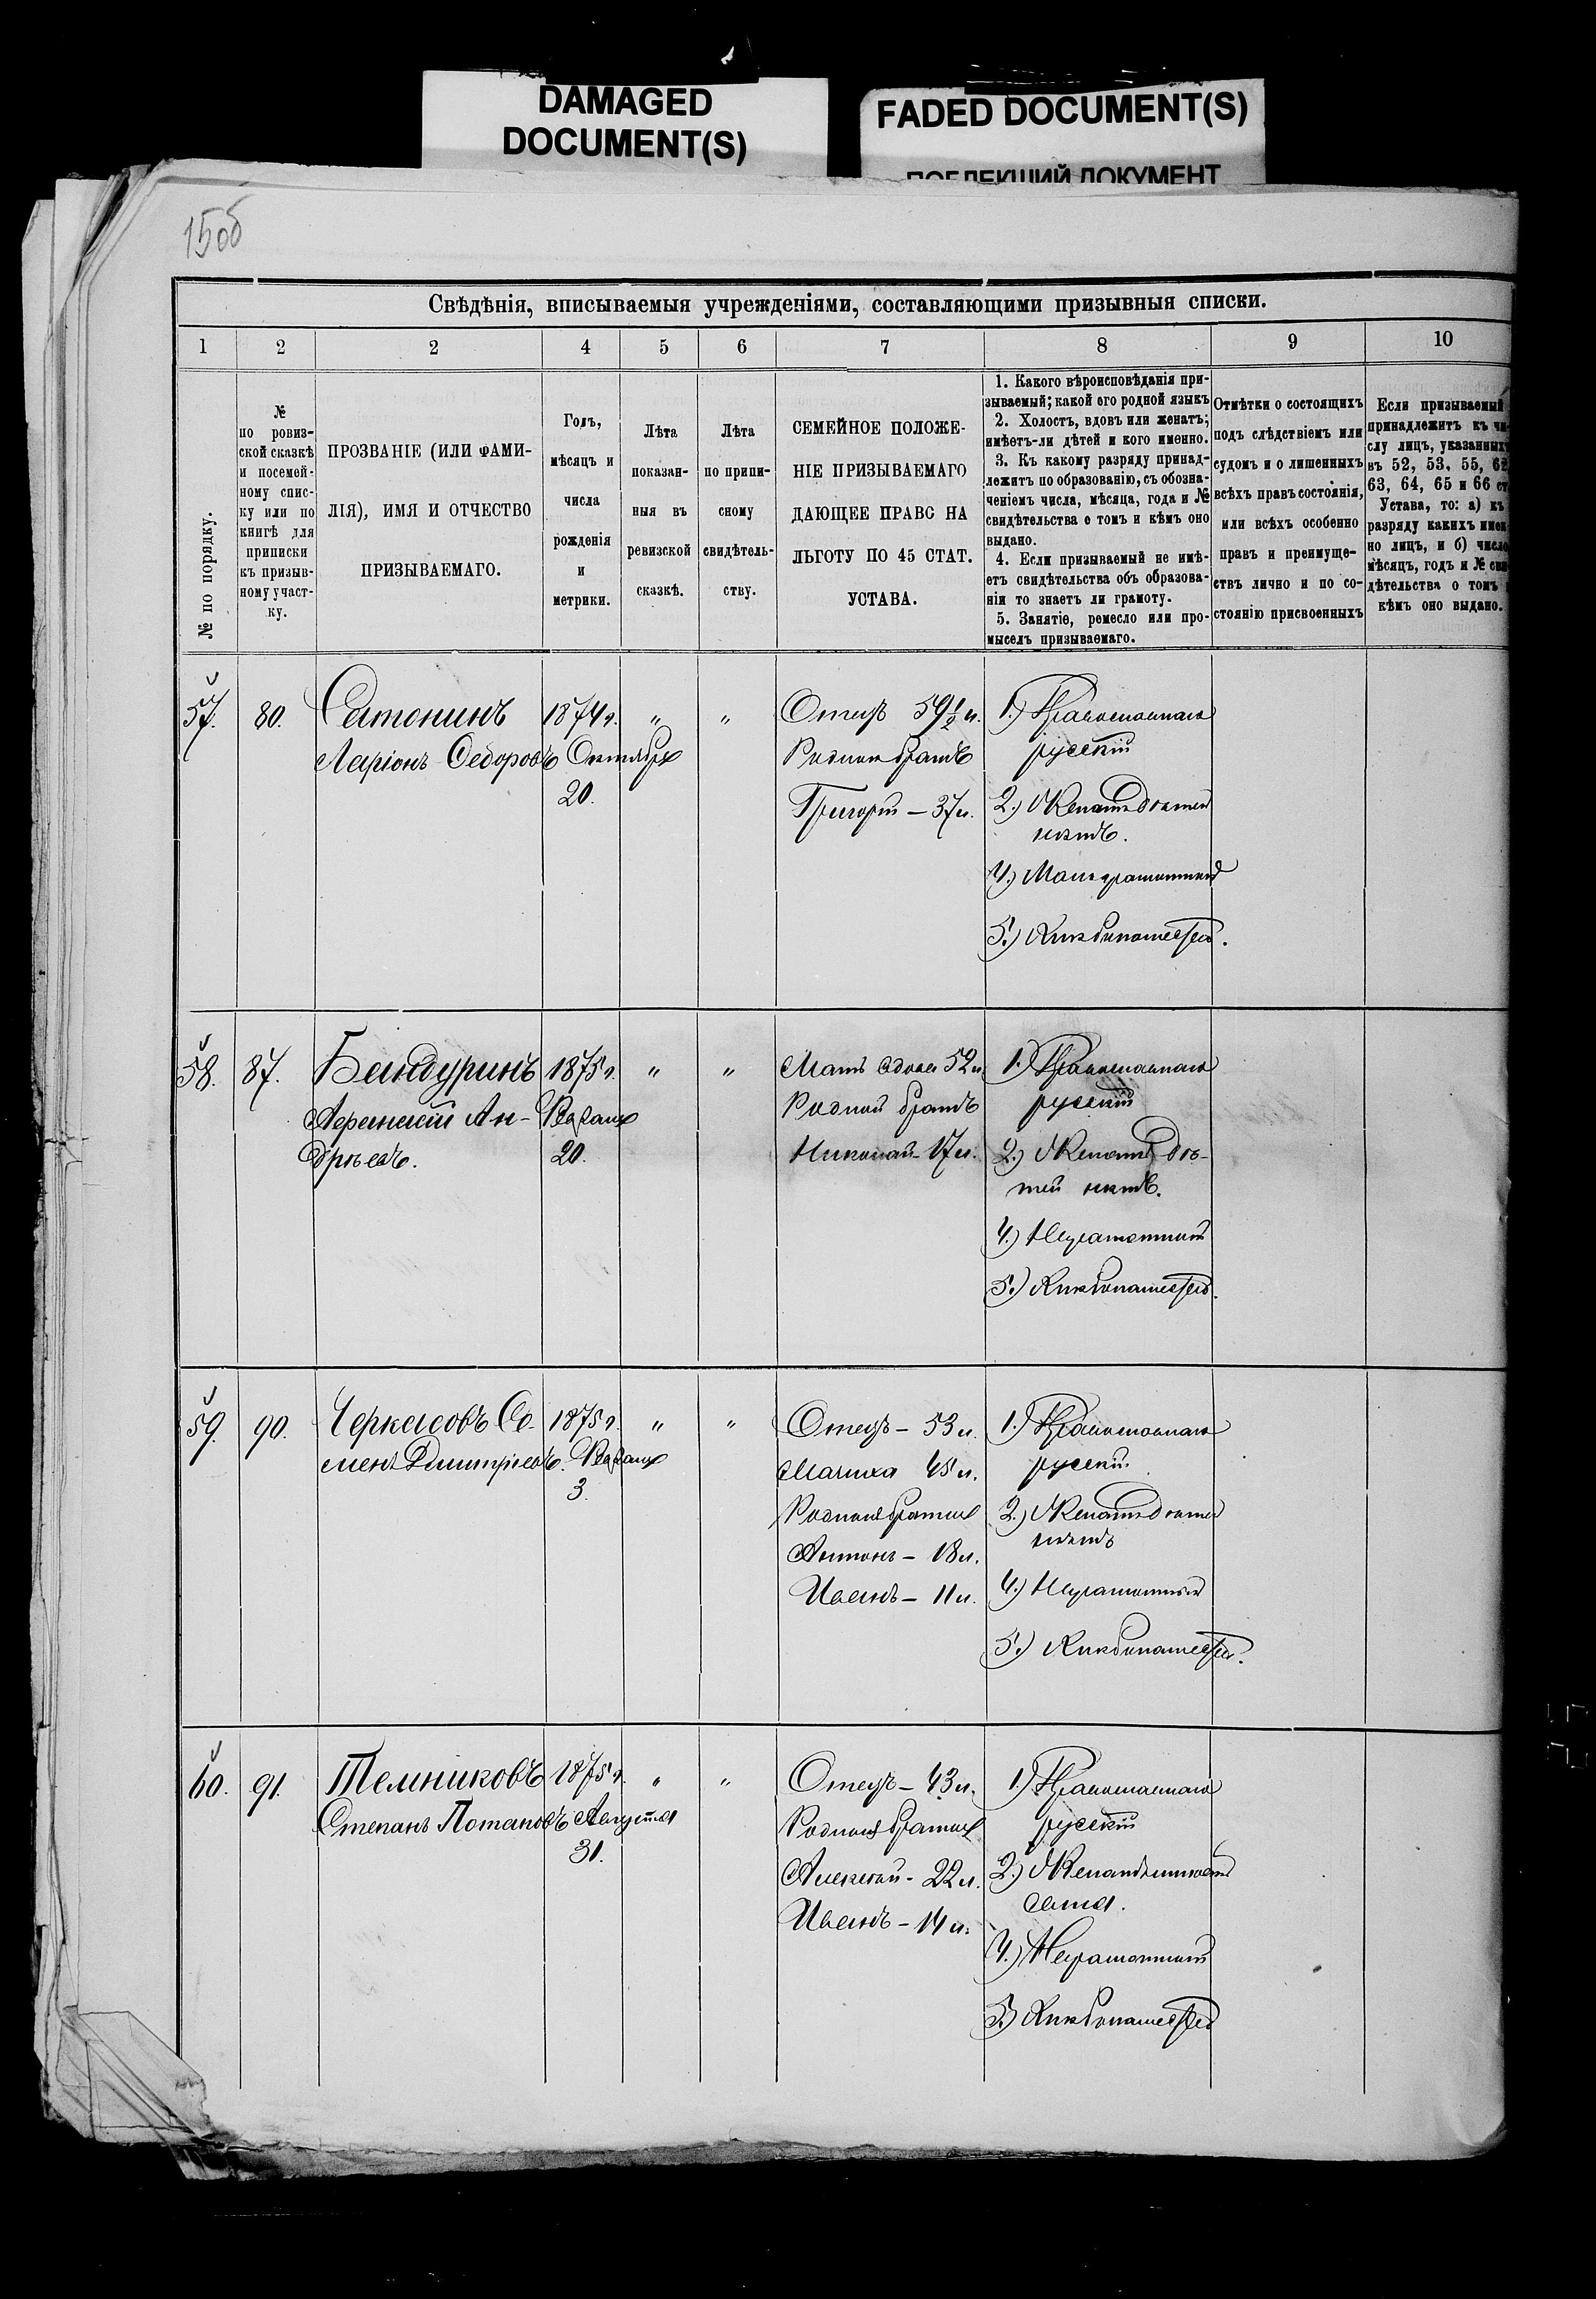 DAMAGED
DOCUMENT(S)
FADED DOCUMENT(S)
ПОБЛЕКШИЙ ДОКУМЕНТ
15об
Свѣдѣнія, вписываемыя учрежденіями, составляющими призывныя списки.
1 2 2 4 5 6 7 8 9 10
№ по порядку.
№
по ровиз-
ской сказкѣ
и посемей-
ному спис-
ку или по
книгѣ для
приписки
къ призыв-
ному участ-
ку.
ПРОЗВАНІЕ (ИЛИ ФАМИ-
ЛІЯ), ИМЯ И ОТЧЕСТВО
ПРИЗЫВАЕМАГО.
Годъ,
мѣсяцъ и
числа
рожденія
и
метрики.
Лѣта
показан-
ныя въ
ревизской
сказкѣ.
Лѣта
по припи-
сному
свидѣтель-
ству.
СЕМЕЙНОЕ ПОЛОЖЕ-
НІЕ ПРИЗЫВАЕМАГО
ДАЮЩЕЕ ПРАВО НА
ЛЬГОТУ ПО 45 СТАТ.
УСТАВА.
1. Какого вѣроисповѣданія при-
зываемый; какой его родной языкъ
2. Холостъ, вдовъ или женатъ;
имѣетъ-ли дѣтей и кого именно.
3. Къ какому разряду принад-
лежитъ по образованію, съ обозна-
ченіемъ числа, мѣсяца, года и №
свидѣтельства о томъ и кѣмъ оно
выдано.
4. Если призываемый не имѣ-
етъ свидѣтельства объ образова-
ніи то знаетъ ли грамоту.
5. Занятіе, ремесло или про-
мыселъ призываемаго.
Отмѣтки о состоящихъ
подъ слѣдствіемъ или
судомъ и о лишенныхъ
всѣхъ правъ состоянія,
или всѣхъ особенно
правъ и преимуще-
ствъ лично и по со-
стоянію присвоенныхъ
Если призываемый
принадлежитъ къ чи-
слу лицъ, указанныхъ
въ 52, 53, 55, 62
63, 64, 65 и 66 ст.
Устава, то: а) къ
разряду какихъ имен-
но лицъ, и б) число
мѣсяцъ, годъ и № сви-
дѣтельства о томъ и
кѣмъ оно выдано.
57. 80.
Сатонинъ
Ларіонъ Ѳедоровъ
1874 г.
Октября
20.
" "
Отецъ 59½ л.
Родной братъ
Григорій — 37 л.
1.) Православнаго
русскій
2.) Женатъ дѣтей
нѣтъ.
4.) Малограмотный
5.) Хлѣбопашество.
58. 87.
Бандуринъ
Аѳанасій Ан-
дреевъ.
1875 г.
Января
20.
" "
Мать вдова 52 л.
Родной братъ
Николай — 17 л.
1.) Православнаго
русскій
2.) Женатъ дѣ-
тей нѣтъ.
4.) Неграмотный
5.) Хлѣбопашество.
59. 90.
Черкасовъ Се-
менъ Дмитріевъ.
1875 г.
Января
3.
" "
Отецъ — 53 л.
Мачиха 45 л.
Родные братья
Антонъ — 18 л.
Иванъ — 11 л.
1.) Православнаго
русскій.
2.) Женатъ дѣтей
нѣтъ
4.) Неграмотный
5.) Хлѣбопашество.
60. 91.
Темниковъ
Степанъ Потаповъ
1875 г.
Августа
31.
" "
Отецъ — 43 л.
Родные братья
Алексѣй — 22 л.
Иванъ — 14 л.
1.) Православнаго
русскій
2.) Женатъ имѣетъ
сына.
4.) Неграмотный
5.) Хлѣбопашество